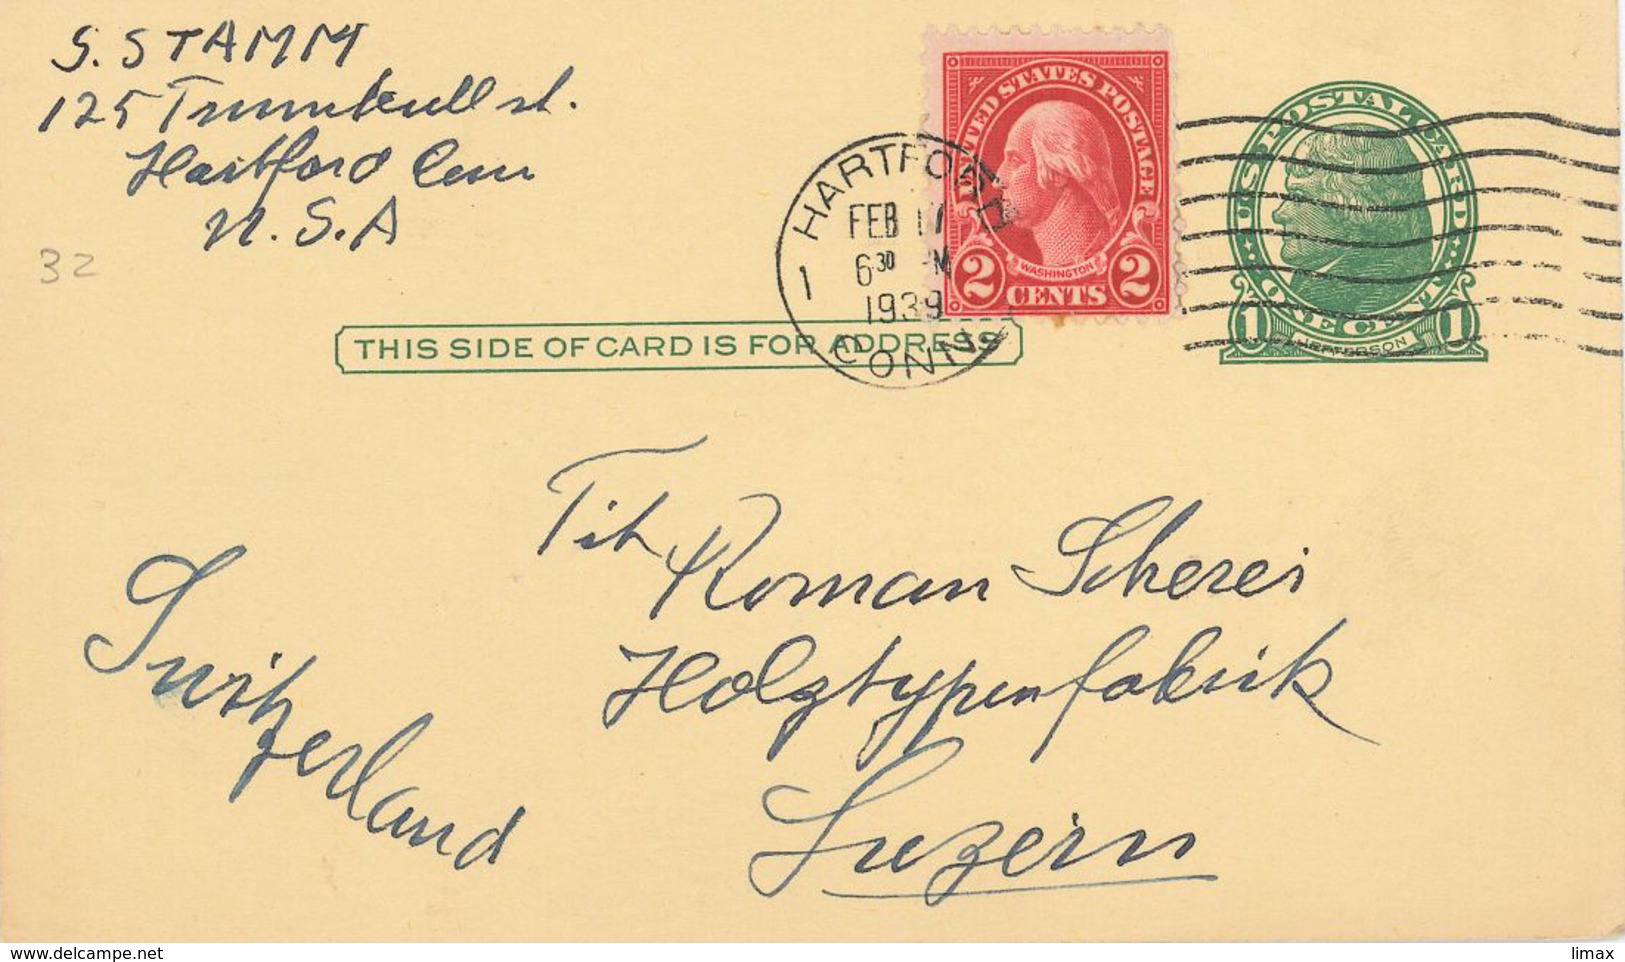 S. STAMM
125 Trumbull st.
Hartford Conn
U.S.A
32
UNITED STATES POSTAGE
WASHINGTON
2 CENTS 2
U.S. POSTAL CARD
1 ONE CENT 1
JEFFERSON
HARTFORD
1
FEB 17
6 30 M
1939
CONN.
THIS SIDE OF CARD IS FOR ADDRESS
Tit
Roman Scherei
Holztypenfabrik
Luzern
Switzerland
www.delcampe.net
limax